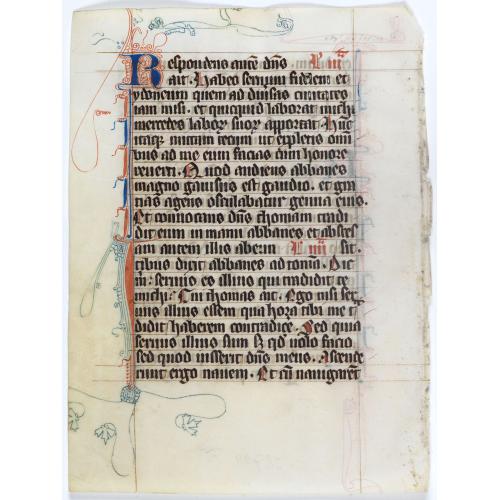 Respondens autē dñs
ait. Habeo seruum fidelem et
ydoneum quem ad diuisas ciuitates
iam misi. et quicquid laborat michi
mercedes labor suor apportat. Hūc
itaq mittam tecum ut expletis om̄
bus ad me eum facias cum honore
reuerti. Quod audiens abbanes
magno gauisus est gaudio. et gra
tias agens osculabatur genua eius.
Et conuocans dñs thomam tradi
dit eum in manu abbanes et abscess
am autem illis abeun
tibus dicit abbanes ad tomā. Dic
m seruus es illius qui tradidit te
michi. Cui thomas ait. Ego nisi ser
uus illius essem qua hora tibi me t
didit haberem contradice. Sed quia
seruus illius sum q̄ qd uolo facio
sed quod iusserit dñs meus. Ascende
runt ergo nauem. Et cū nauigarēt